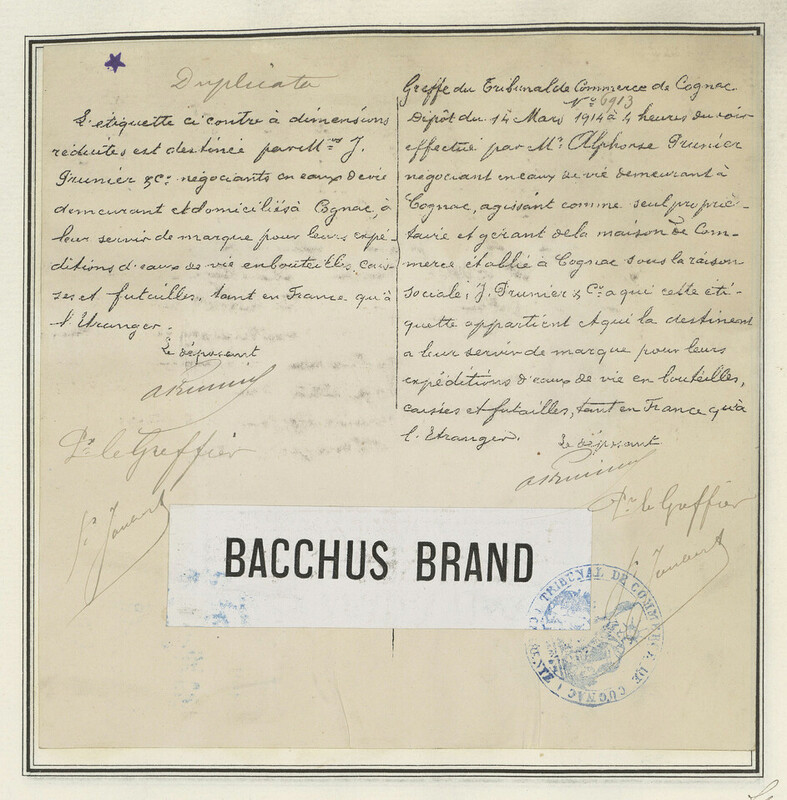 Duplicata
L'etiquette ci contre à dimensions
réduites est destinée par Mrs J.
Prunier & Co. négociants en eaux de vie
demeurant et domiciliés à Cognac, à
leur servir de marque pour leurs expé-
ditions d'eaux de vie en bouteilles, cais-
ses et futailles, tant en France qu'à
l'Etranger.
Le déposant
APrunier
Pr le Greffier
Greffe du Tribunal de Commerce de Cognac.
No 6913
Dépôt du 14 Mars 1914 à 4 heures du soir
effectué par Mr Alphonse Prunier
négociant en eaux de vie demeurant à
Cognac, agissant comme seul proprié-
taire et gérant de la maison de Com-
merce établie à Cognac sous la raison
sociale, J. Prunier & Co a qui cette éti-
quette appartient et qui la destinent
a leur servir de marque pour leurs
expéditions d'eaux de vie en bouteilles,
caisses et futailles, tant en France qu'à
l'Etranger.
Le déposant
APrunier
Pr le Greffier
BACCHUS BRAND
TRIBUNAL DE COMMERCE DE COGNAC